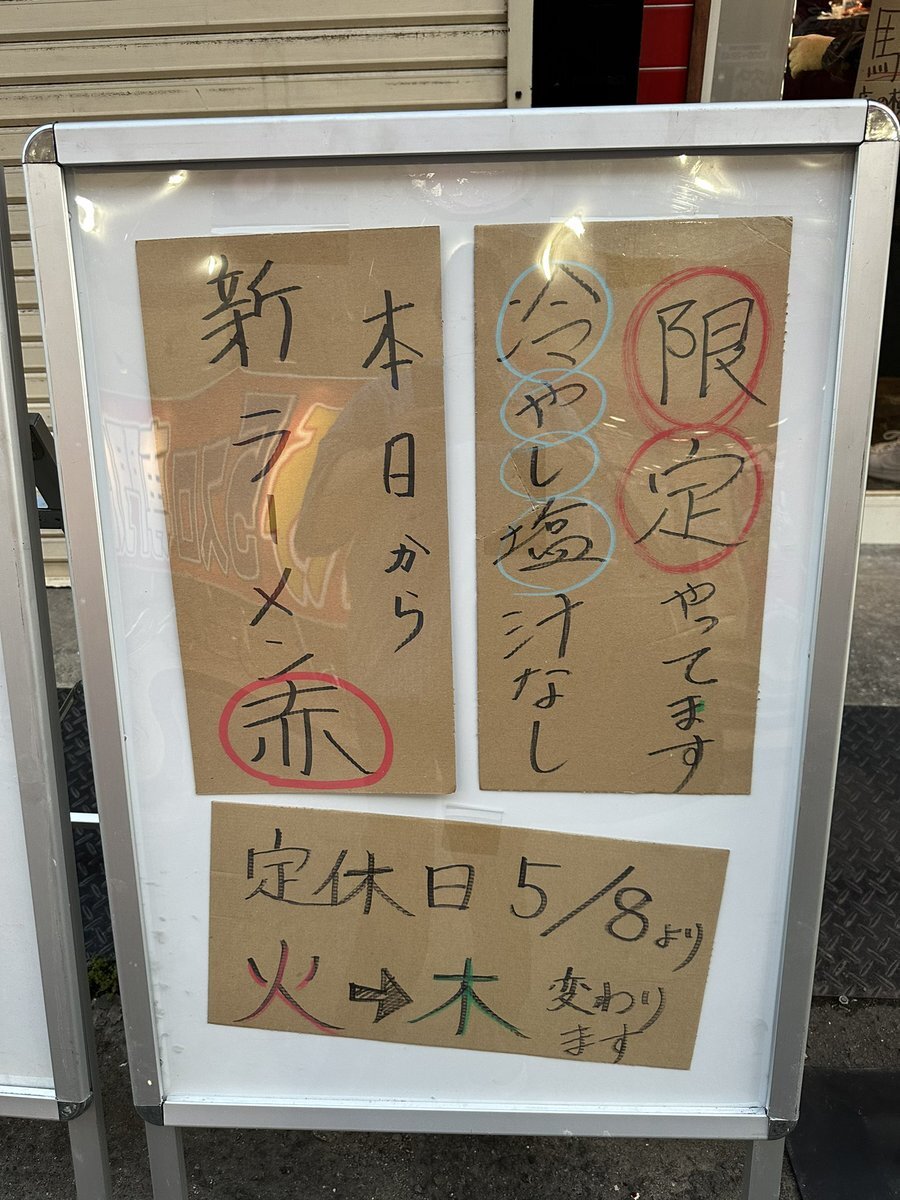 限定やってます
冷やし塩汁なし
本日から
新ラーメン赤
定休日 5/8より
火→木 変わり
ます
馬